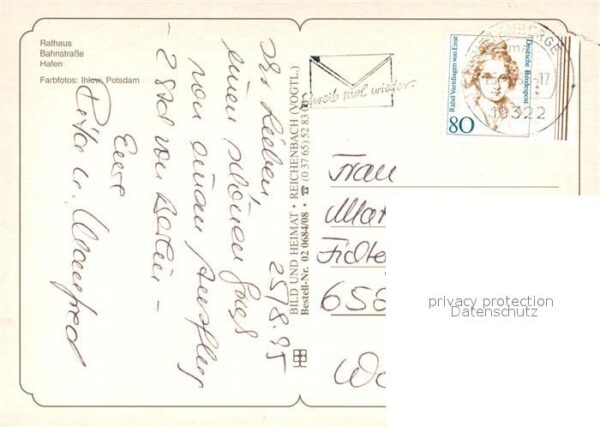 Rathaus
Bahnstraße
Hafen
Farbfotos: Ihlow, Potsdam
25/8.95
Ihr Lieben,
einen schönen Gruß
von einem Ausflug
2 Std von Berlin –
Eure
Rita u. Manfred
BILD UND HEIMAT • REICHENBACH (VOGTL.)
Bestell-Nr. 02 0684/08 • ☎ (0 37 65) 52 83 00
Schreib mal wieder.
Rahel Varnhagen von Ense
Deutsche Bundespost
80
19322
Frau
Mar
Fichte
656
privacy protection
Datenschutz